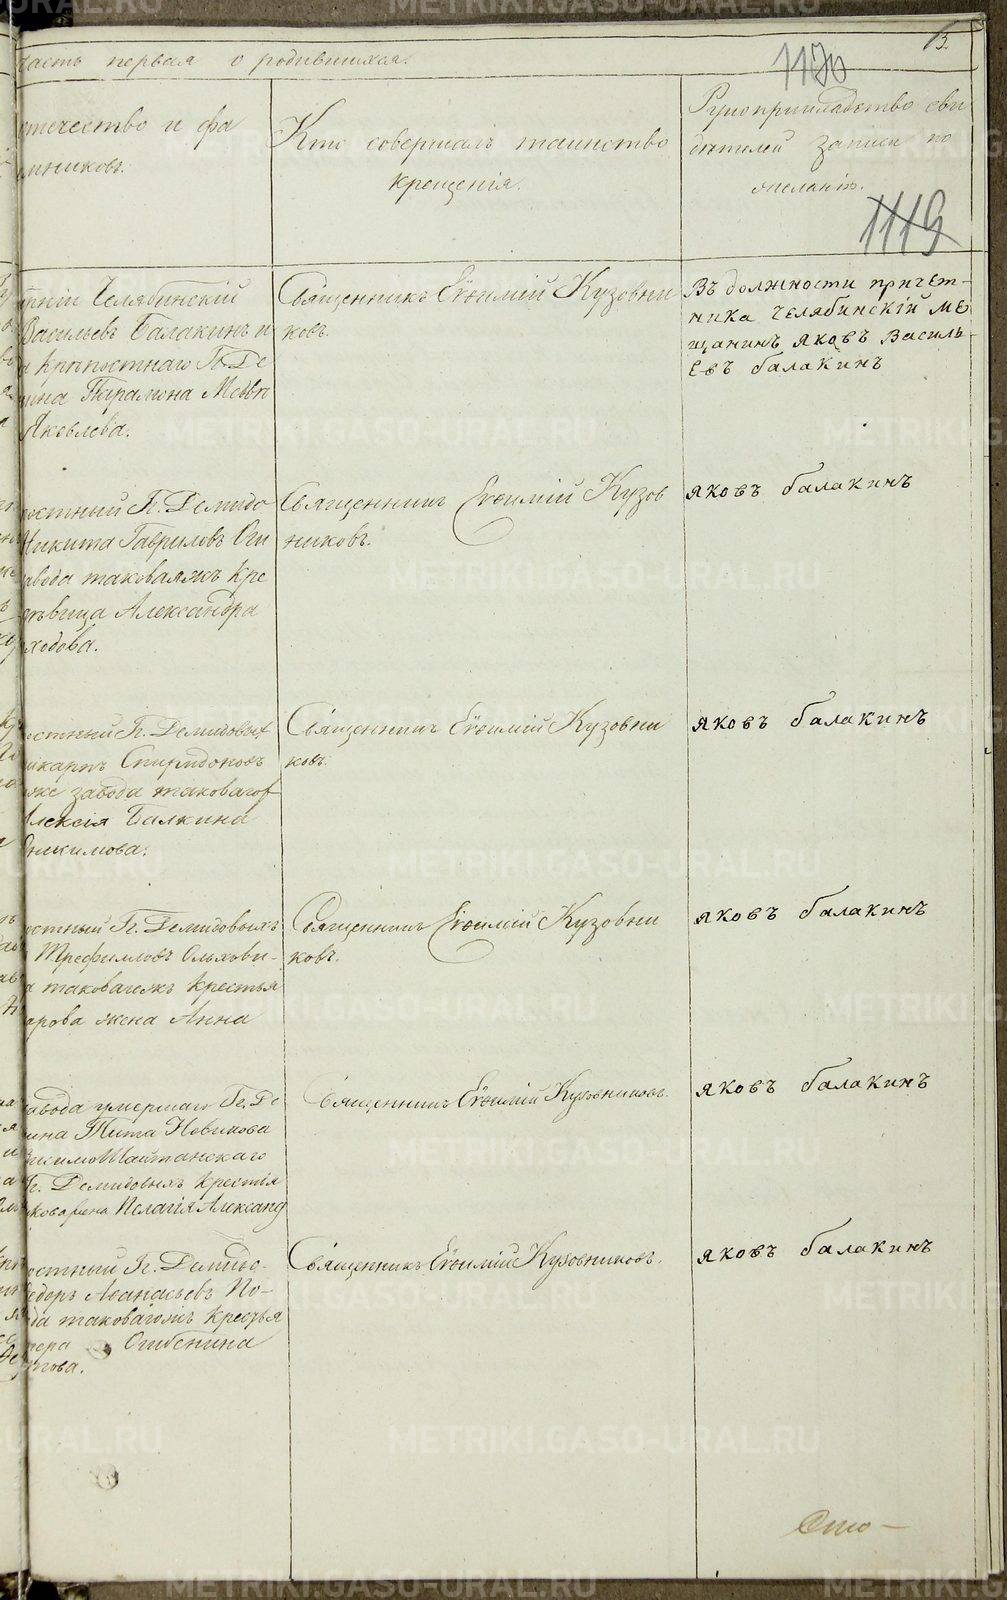 часть первая о родившихся.
13
1120
1119
отчество и фа
мников.
Кто совершалъ таинство
крещенія.
Рукоприкладство сви
дѣтелей записи по
желанію.
Челябинскій
Васильевъ Балакинъ и
крѣпостнаго Г. Де
Парамона Медвѣ
Яковлева.
Священникъ Евѳимій Кузовни
ковъ.
Въ должности причет-
ника челябинскій ме
щанинъ яковъ Василь-
Евъ балакинъ
остный Г. Демидо
Никита Гавриловъ Оги
авода таковаяжъ кре
дѣвица Александра
ходова.
Священникъ Евѳимій Кузов
никовъ.
яковъ балакинъ
остный Г. Демидовых
Спиридоновъ
же завода таковагоже
лексія Балкина
Священникъ Евѳимій Кузовни
ковъ.
яковъ балакинъ
остный Г. Демидовыхъ
Трефиловъ Ольхови-
а таковагожъ крестья
арова жена Анна
Священникъ Евѳимій Кузовни
ковъ.
яковъ балакинъ
авода умершаго Г. Де
ина Тита Новикова
Висимошайтанскаго
Г. Демидовыхъ крестья
кова жена Пелагія Александ
Священникъ Евѳимій Кузовниковъ.
яковъ балакинъ
остный Г. Демидо-
едоръ Аѳанасьевъ По-
ода таковагожъ крестья
тера Огибенина
гова.
Священникъ Евѳимій Кузовниковъ.
яковъ балакинъ
Сто-
METRIKI.GASO-URAL.RU